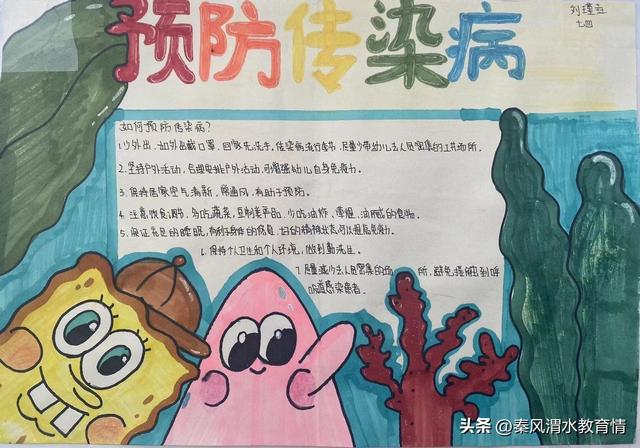 预防传染病
七四
如何预防传染病?
1.少外出,如外出戴口罩,回家先洗手,传染病流行季节,尽量少带幼儿去人员密集的公共场所。
2.坚持户外活动,合理安排户外活动,可增强幼儿自身免疫力。
3.保持居家空气清新,常通风,有助于预防。
4.注意饮食调,多吃蔬菜,豆制类产品,少吃油炸、熏,油腻的食物。
5.保证充足的睡眠,有利于身体的恢复,好的精神状态可以提高免疫力。
6.保持个人卫生和个人环境,做到勤洗手。
7.尽量减少去人员密集的场所,避免接触到呼
吸道感染患者。
头条 @秦风渭水教育情